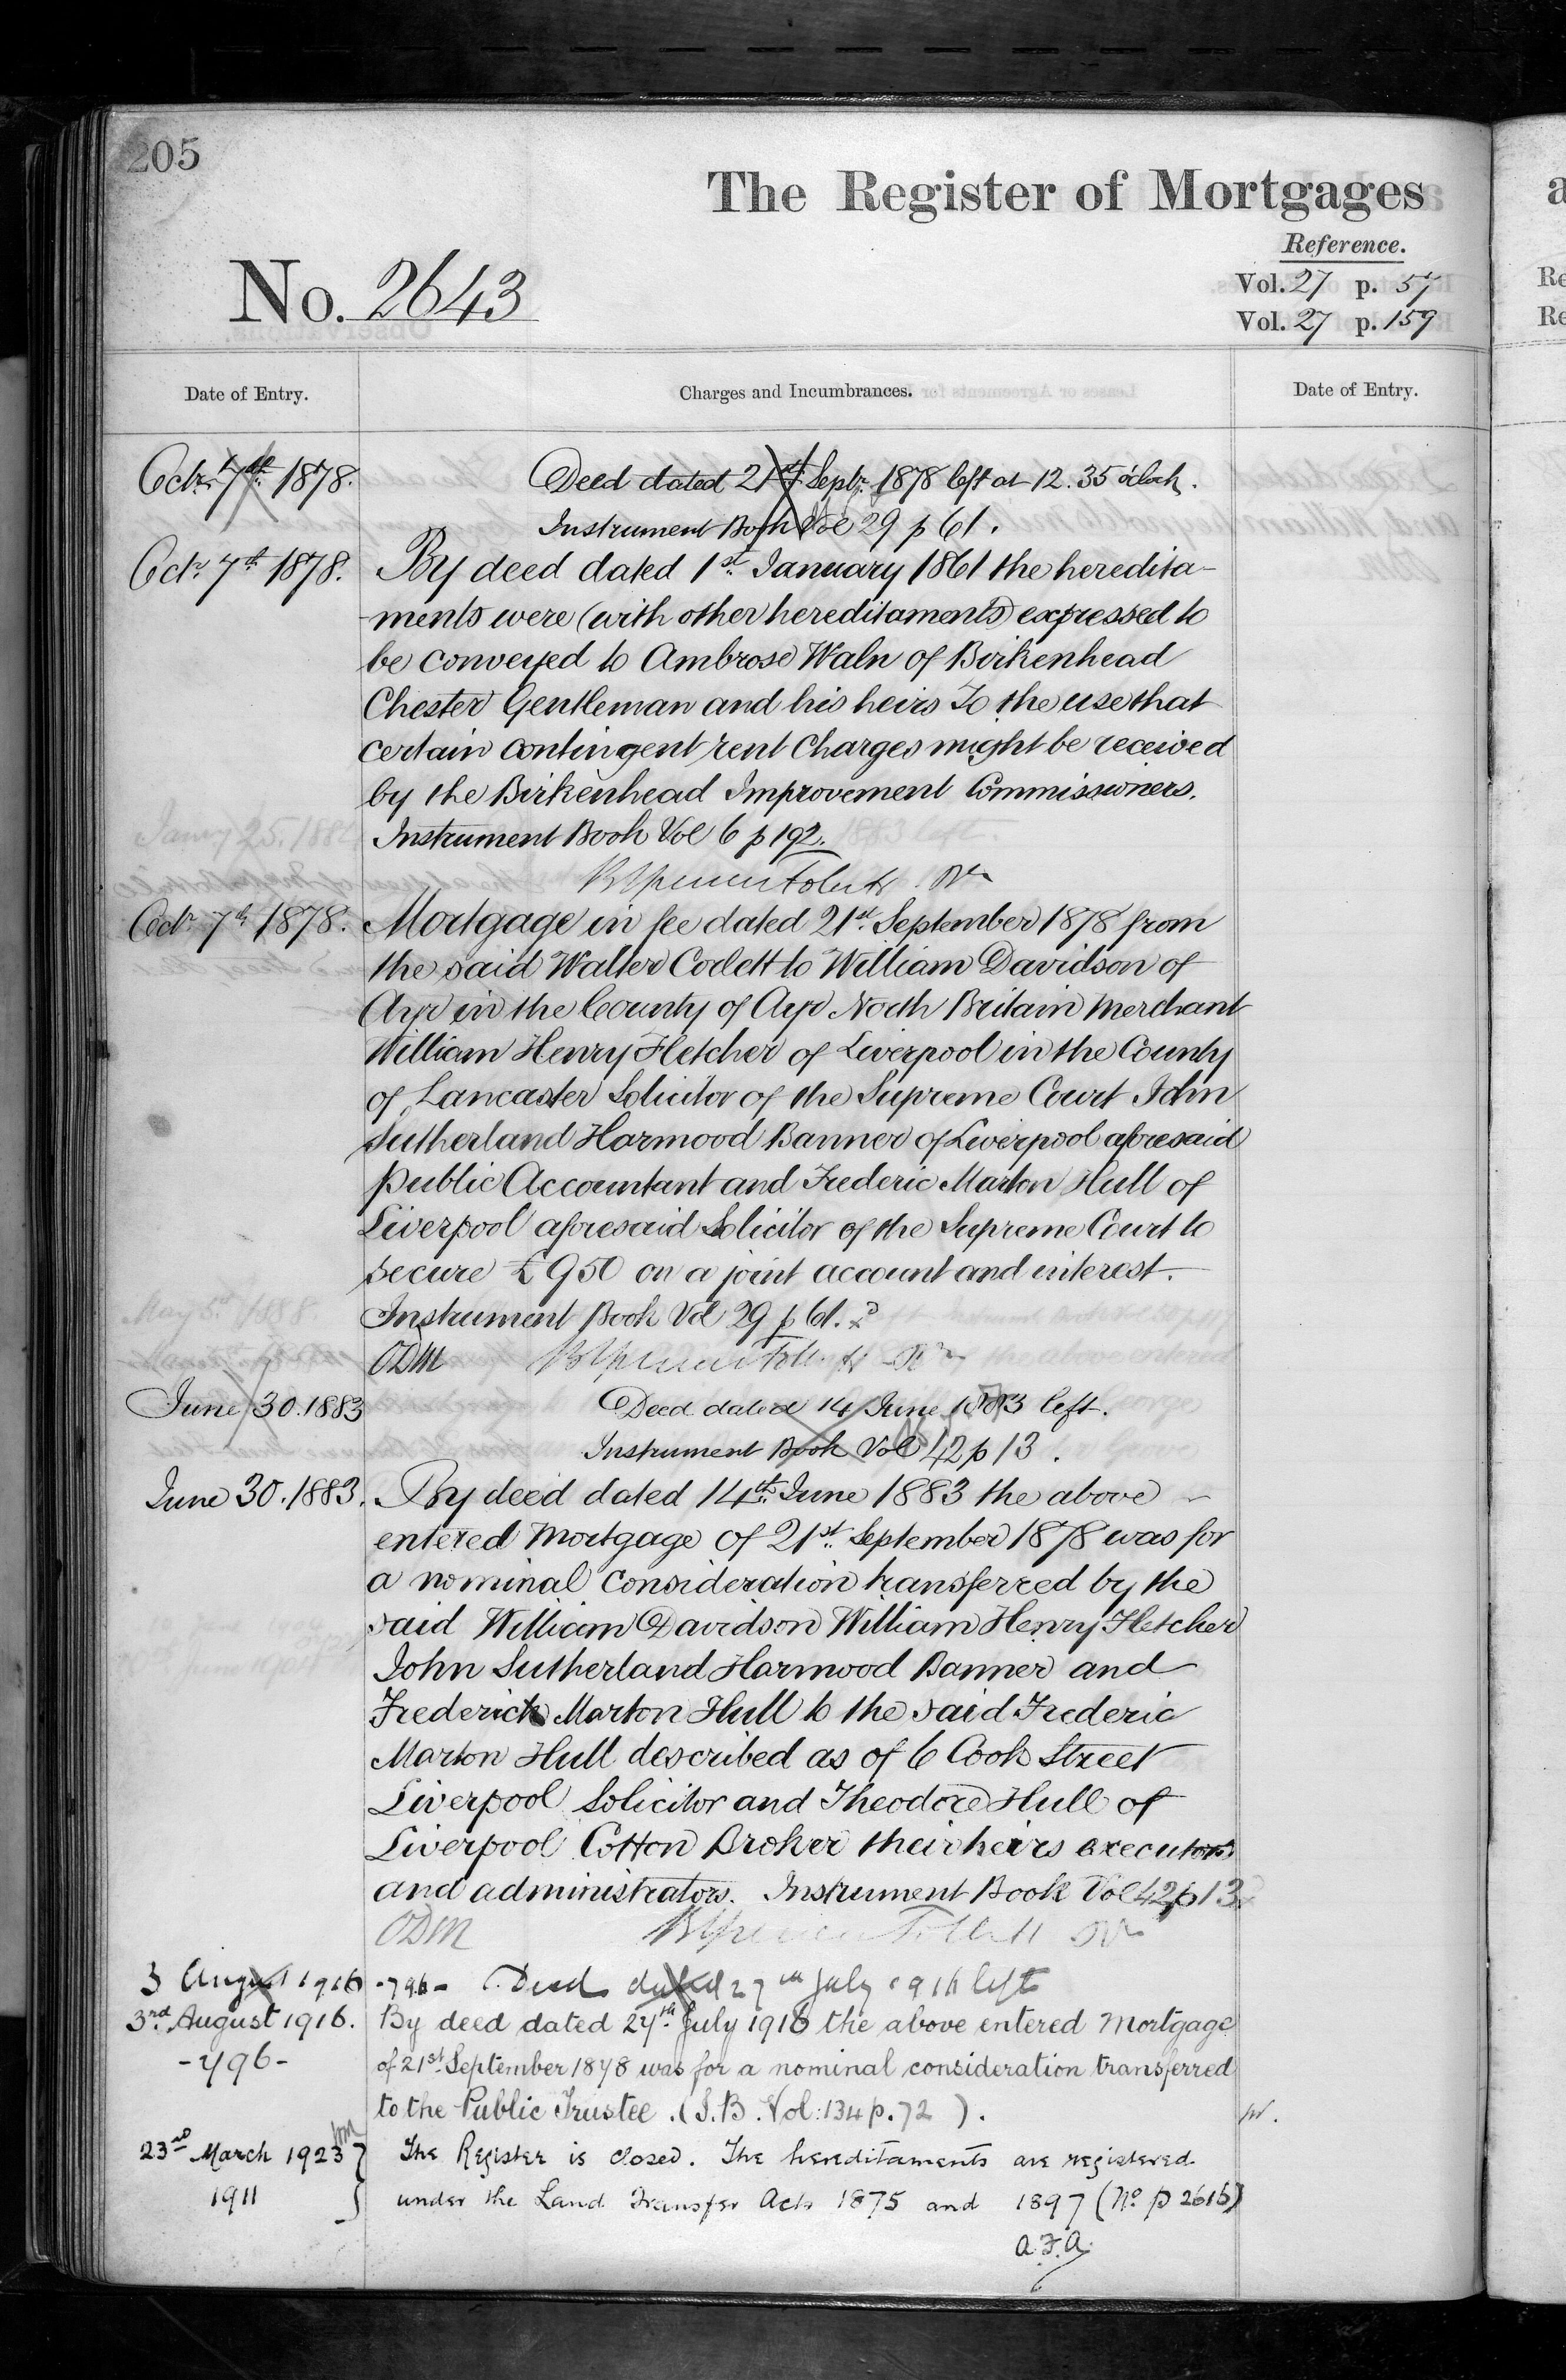 205
The Register of Mortgages
Reference.
No. 2643
Vol. 27 p. 57
Vol. 27 p. 159
Date of Entry.
Charges and Incumbrances.
Date of Entry.
Octr. 7th 1878.
Deed dated 21st Septr. 1878 left at 12.35 o'clock.
Instrument Book Vol 29 p 61.
Octr 7th 1878.
By deed dated 1st January 1861 the heredita-
-ments were (with other hereditaments) expressed to
be conveyed to Ambrose Waln of Birkenhead
Chester Gentleman and his heirs To the use that
certain contingent rent charges might be received
by the Birkenhead Improvement Commissioners.
Instrument Book Vol 6 p 192.
Octr 7th 1878.
Mortgage in fee dated 21st September 1878 from
the said Walter Corlett to William Davidson of
Ayr in the County of Ayr North Britain Merchant
William Henry Fletcher of Liverpool in the County
of Lancaster Solicitor of the Supreme Court John
Sutherland Harmood Banner of Liverpool aforesaid
Public Accountant and Frederic Marton Hull of
Liverpool aforesaid Solicitor of the Supreme Court to
secure £950 on a joint account and interest.
Instrument Book Vol 29 p 61.
ODM
June 30. 1883
Deed dated 14 June 1883 left.
Instrument Book Vol 42 p 13.
June 30. 1883.
By deed dated 14th June 1883 the above
entered Mortgage of 21st September 1878 was for
a nominal consideration transferred by the
said William Davidson William Henry Fletcher
John Sutherland Harmood Banner and
Frederick Marton Hull to the said Frederic
Marton Hull described as of 6 Cook Street
Liverpool Solicitor and Theodore Hull of
Liverpool Cotton Broker their heirs executors
and administrators. Instrument Book Vol 42 p 13
ODM
3 August 1916
-796- Deed dated 27th July 1916 left
3rd August 1916.
By deed dated 27th July 1916 the above entered Mortgage
-796-
of 21st September 1878 was for a nominal consideration transferred
to the Public Trustee. (I.B. Vol: 134 p. 72 ).
23rd March 1923
The Register is closed. The hereditaments are registered
1911
under the Land Transfer Acts 1875 and 1897 (No P 2616)
A.F.A.